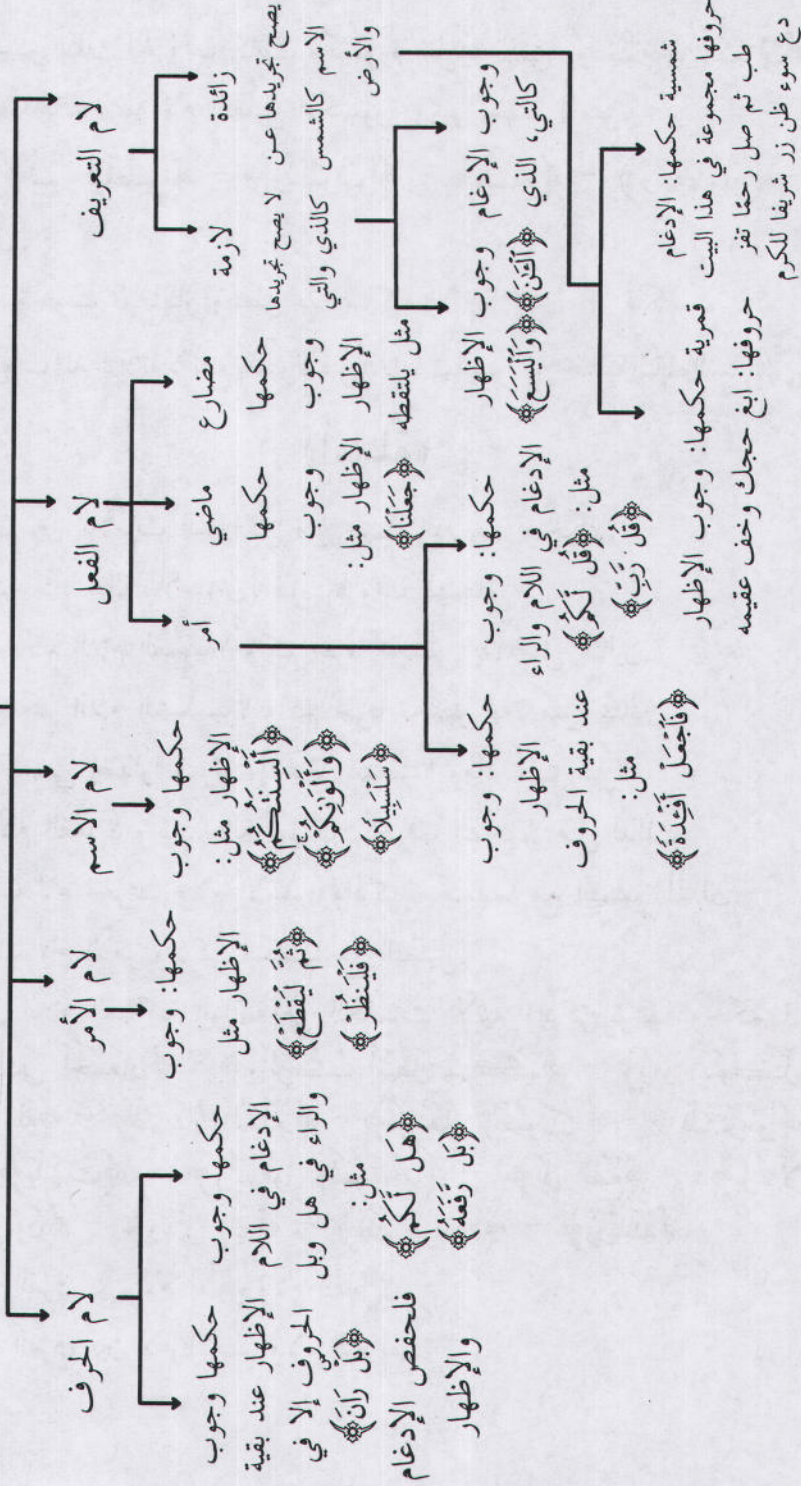 لام التعريف
لازمة
زائدة
لا يصح تجريدها
كالذي والتي
يصح تجريدها عن
الاسم كالشمس
والأرض
وجوب الإظهار
﴿وَٱلْيَسَعَ﴾ ﴿ٱلْـَٰٔنَ﴾
وجوب الإدغام
كالتي، الذي
شمسية حكمها: الإدغام
حروفها مجموعة في هذا البيت
طب ثم صل رحمًا تفز
دع سوء ظن زر شريفا للكرم
قمرية حكمها: وجوب الإظهار
حروفها: ابغ حجك وخف عقيمه
لام
الفعل
مضارع
حكمها
وجوب
الإظهار
مثل يلتقطه
ماضي
حكمها
وجوب
الإظهار مثل:
﴿جَعَلْنَا﴾
أمر
حكمها: وجوب
الإدغام في اللام والراء
مثل: ﴿قُل لَّكُم﴾
﴿قُل رَّبِّ﴾
حكمها: وجوب
الإظهار
عند بقية الحروف
مثل:
﴿فَٱجْعَلْ أَفْـِٔدَةً﴾
لام
الاسم
حكمها وجوب
الإظهار مثل:
﴿أَلْسِنَتِكُمْ﴾
﴿وَأَلْوَٰنِكُمْ﴾
﴿سَلْسَبِيلًا﴾
لام
الأمر
حكمها: وجوب
الإظهار مثل
﴿ثُمَّ لْيَقْطَعْ﴾
﴿فَلْيَنظُرْ﴾
لام
الحرف
حكمها وجوب
الإدغام في اللام
والراء في هل وبل
مثل:
﴿هَل لَّكُم﴾
﴿بَل رَّفَعَهُ﴾
حكمها وجوب
الإظهار عند بقية
الحروف إلا في
﴿بَلْ رَانَ﴾
فلحفص الإدغام
والإظهار